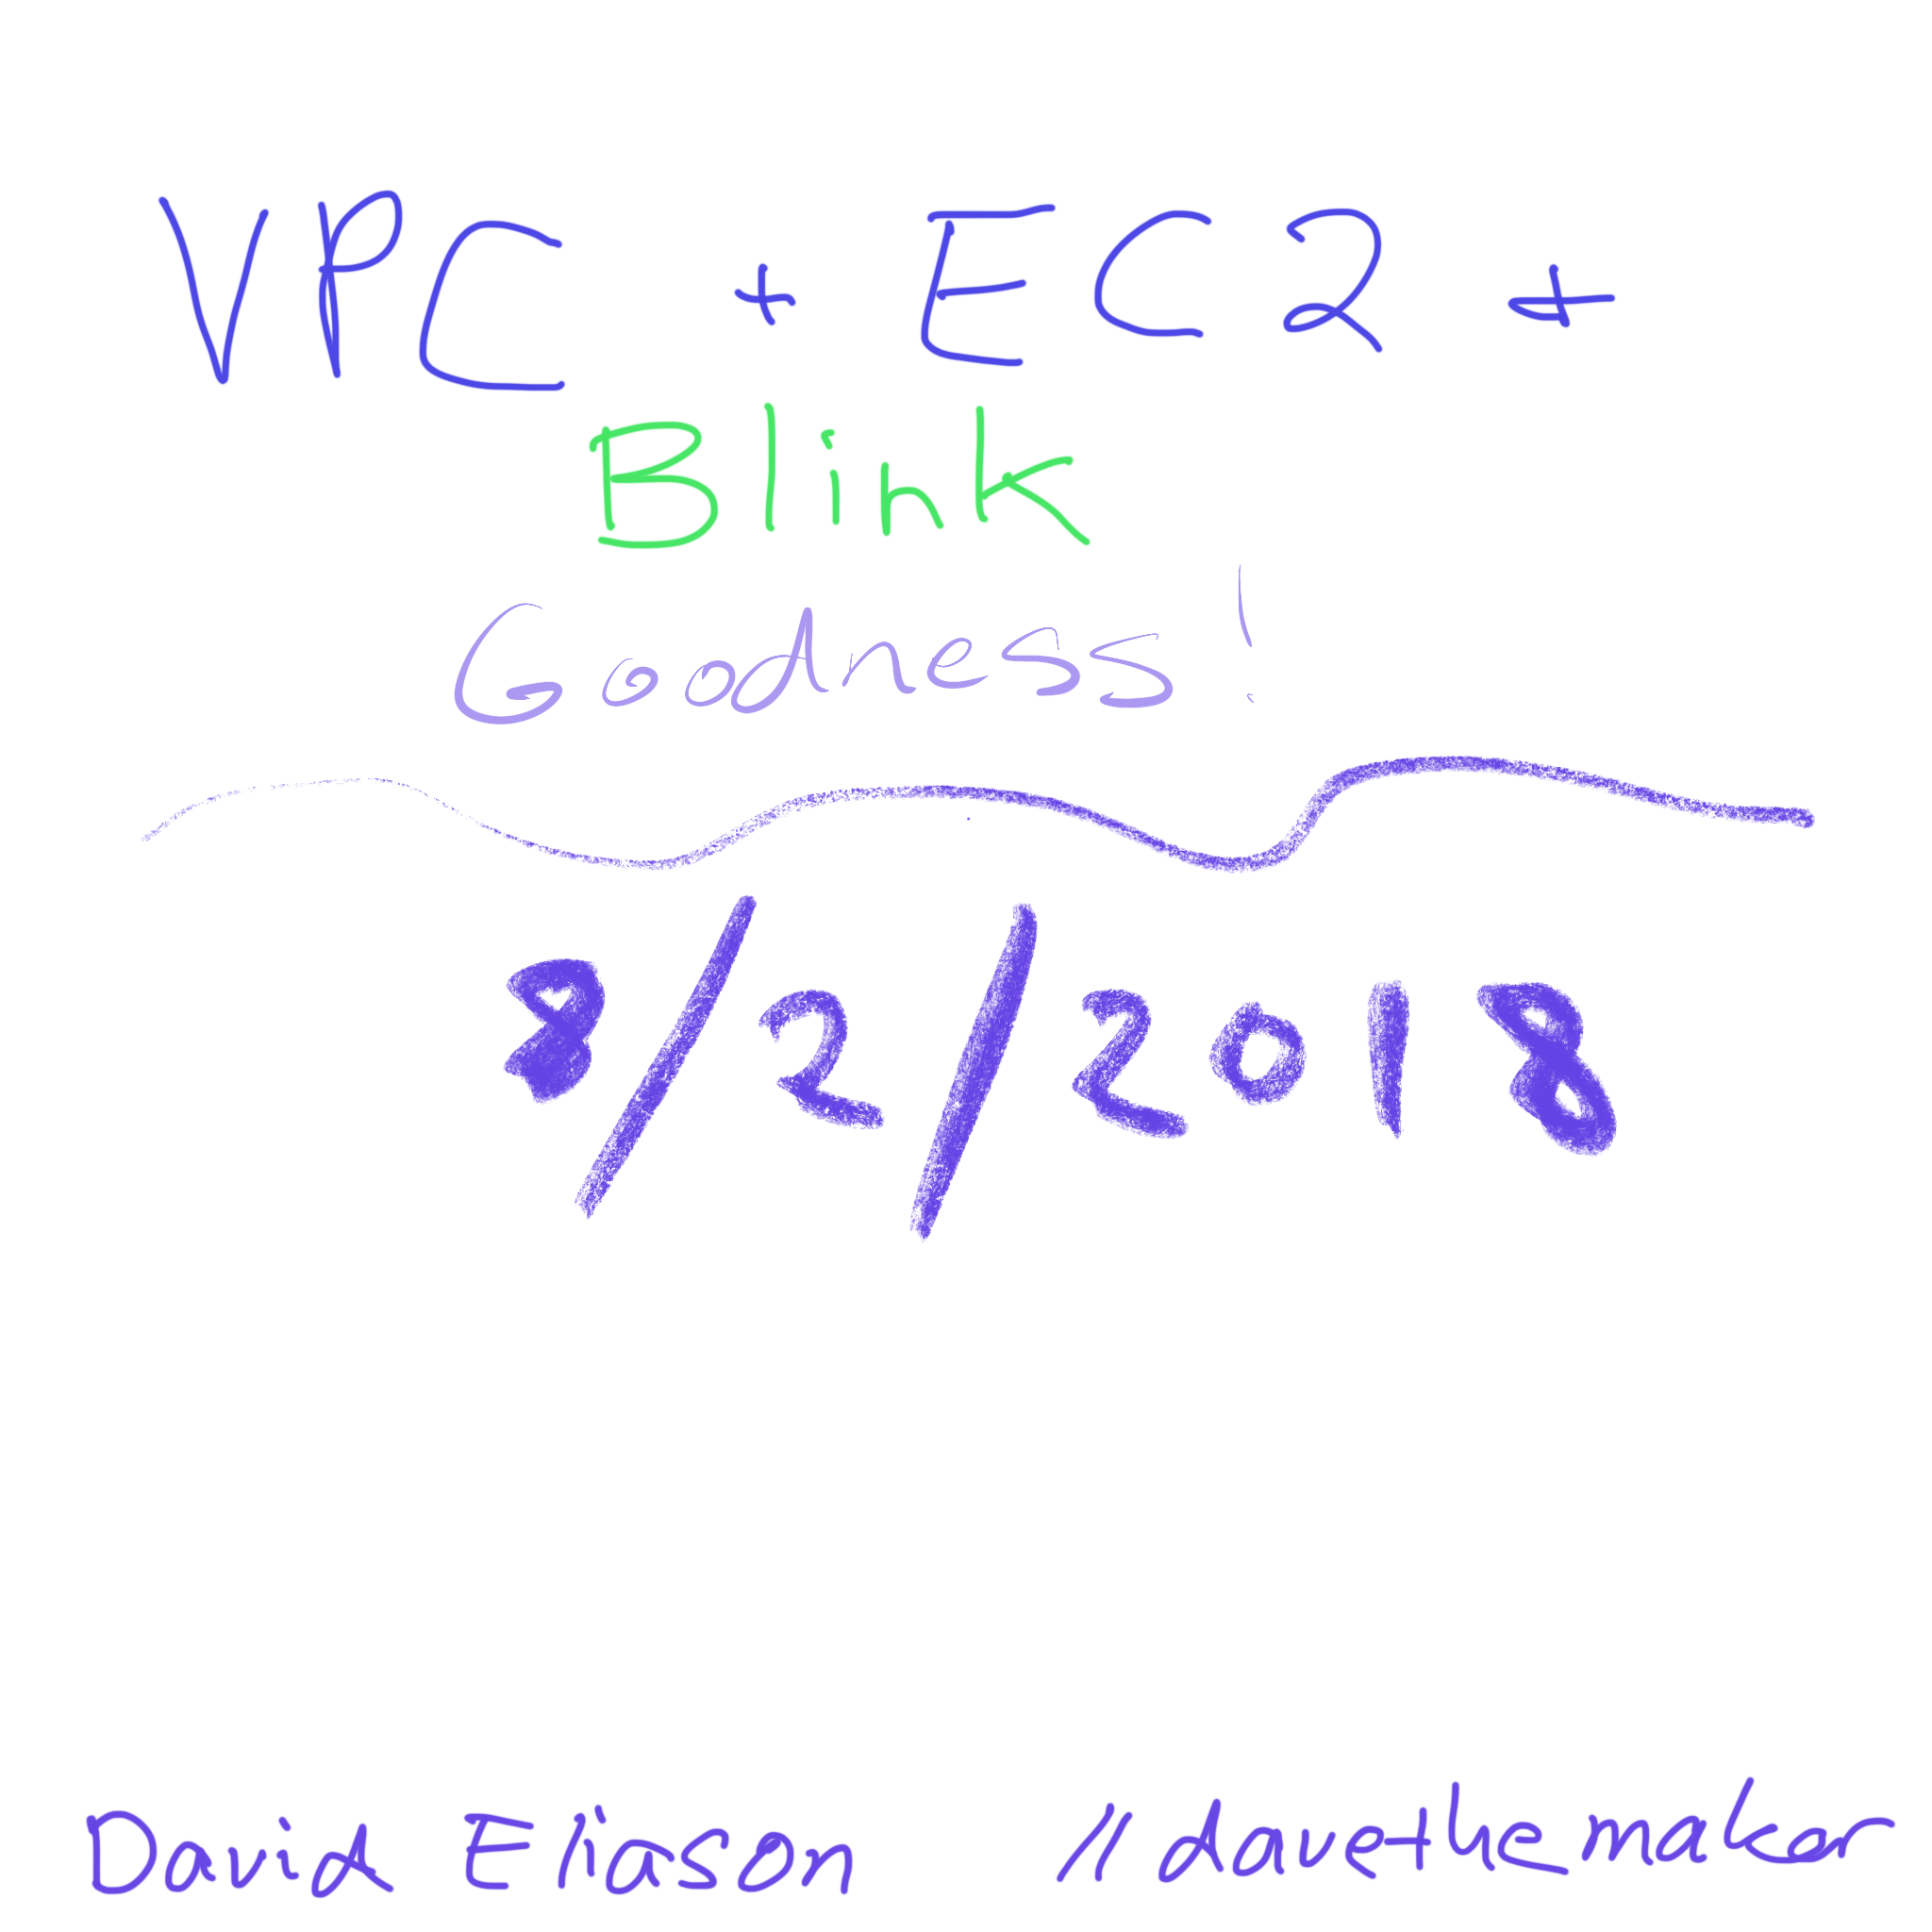 VPC + EC2 +
Blink
Goodness!
8/2/2018
David Eliason // davethemaker